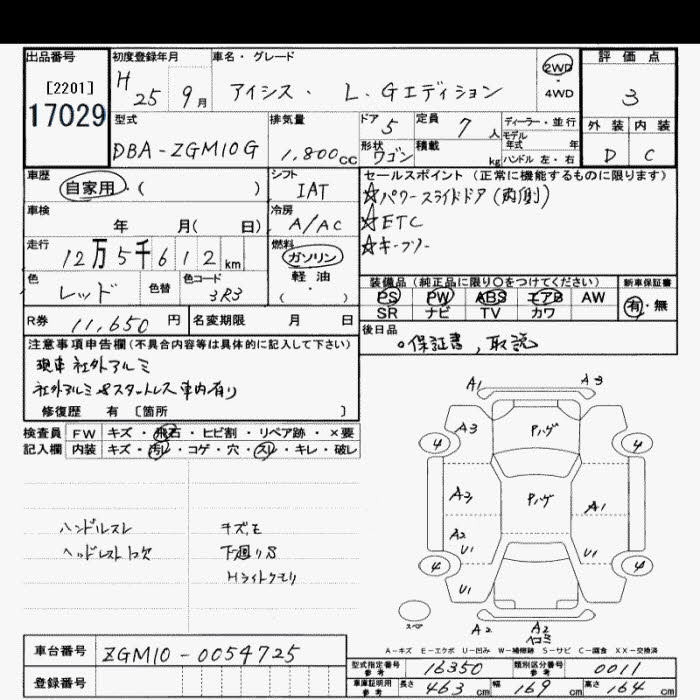 出品番号
[2201]
17029
初度登録年月
H 25 9月
車名・グレード
アイシス・ L. Gエディション
2WD
・
4WD
評価点
3
外装 内装
D C
型式
DBA-ZGM10G
排気量
1,800cc
ドア 5
形状 ワゴン
定員 7人
積載 kg
ディーラー・並行
モデル
年式 年
ハンドル 左・右
車歴
自家用・( )
シフト
IAT
セールスポイント (正常に機能するものに限ります)
☆パワースライドドア(両側)
☆ETC
☆キーフリー
車検
年 月( 日)
冷房
A/AC
走行
12万5千612km
燃料
ガソリン
軽油・
( )
色
レッド
色替
色コード
3R3
装備品 (純正品に限り○をつけてください)
PS PW ABS エアB AW
SR ナビ TV カワ
新車保証書
有・無
R券 11,650円
名変期限 月 日
後日品
。保証書,取説
注意事項申告欄(不具合内容等は具体的に記入して下さい)
現車 社外アルミ
社外アルミ&スタットレス 車内有り
修復歴 有 〔箇所 〕
検査員
記入欄
FW キズ・飛石・ヒビ割・リペア跡・×要
内装 キズ・汚レ・コゲ・穴・スレ・キレ・破レ
ハンドルスレ
ヘッドレスト1コ欠
キズ,モ
下廻りS
Hライトクモリ
A1 A3
A3 Pハゲ
4 4
A3 Pハゲ A1
A2
U1 U1
4 4
U1
スペア
A2 A2
コミ
A-キズ E-エクボ U-凹み W-補修跡 S-サビ C-腐食 XX-交換済
車台番号 ZGM10-0054725
登録番号
型式指定番号
参考
16350
類別区分番号
参考
0011
車庫証明用
参考
長さ 463cm 幅 169cm 高さ 164cm